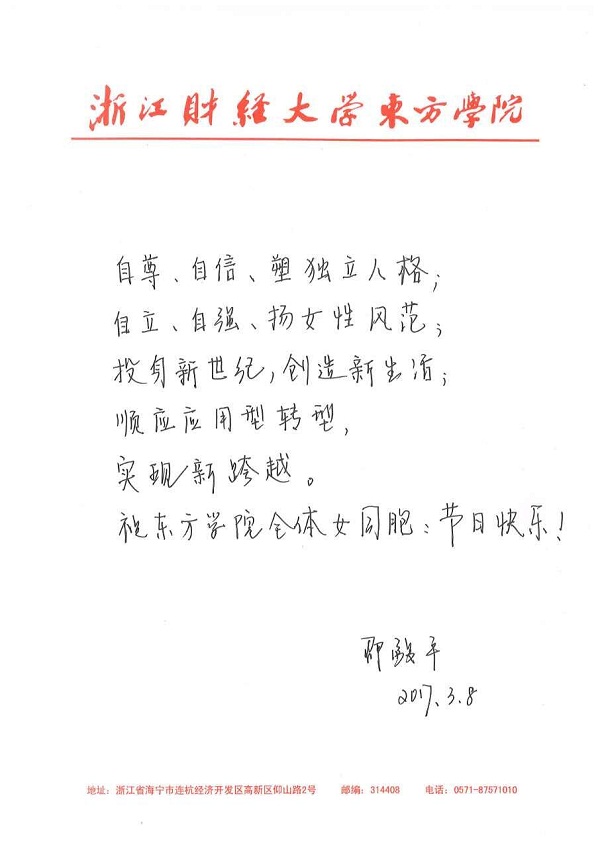 浙江财经大学東方學院
自尊、自信、塑独立人格；
自立、自强、扬女性风范；
投身新世纪，创造新生活；
顺应应用型转型，
实现新跨越。
祝东方学院全体女同胞：节日快乐！
平
2017.3.8
地址：浙江省海宁市连杭经济开发区高新区仰山路2号 邮编：314408 电话：0571-87571010